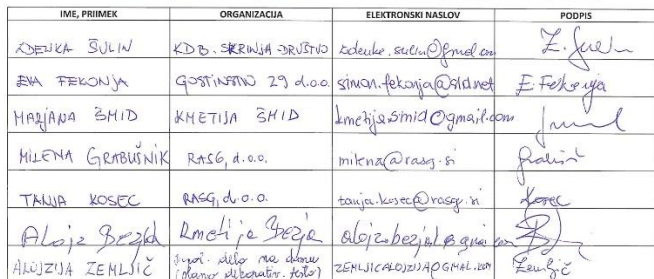 IME, PRIIMEK ORGANIZACIJA ELEKTRONSKI NASLOV PODPIS
ZDENKA ŠULIN KDB. SKRINJA-DRUŠTVO zdenka.sulin@gmail.com
EVA FEKONJA GOSTINSTVO 29 d.o.o. simon.fekonja@siol.net E Fekonja
MARJANA ŠMID KMETIJA ŠMID kmetija.smid@gmail.com
MILENA GRABUŠNIK RASG, d.o.o. milena@rasg.si
TANJA KOSEC RASG, d.o.o. tanja.kosec@rasg.si Kosec
Alojz Bezjak Kmetija Bezjak
ALOJZIJA ZEMLJIČ delo na domu ZEMLJICALOJZIJA@GMAIL.COM Zemljič